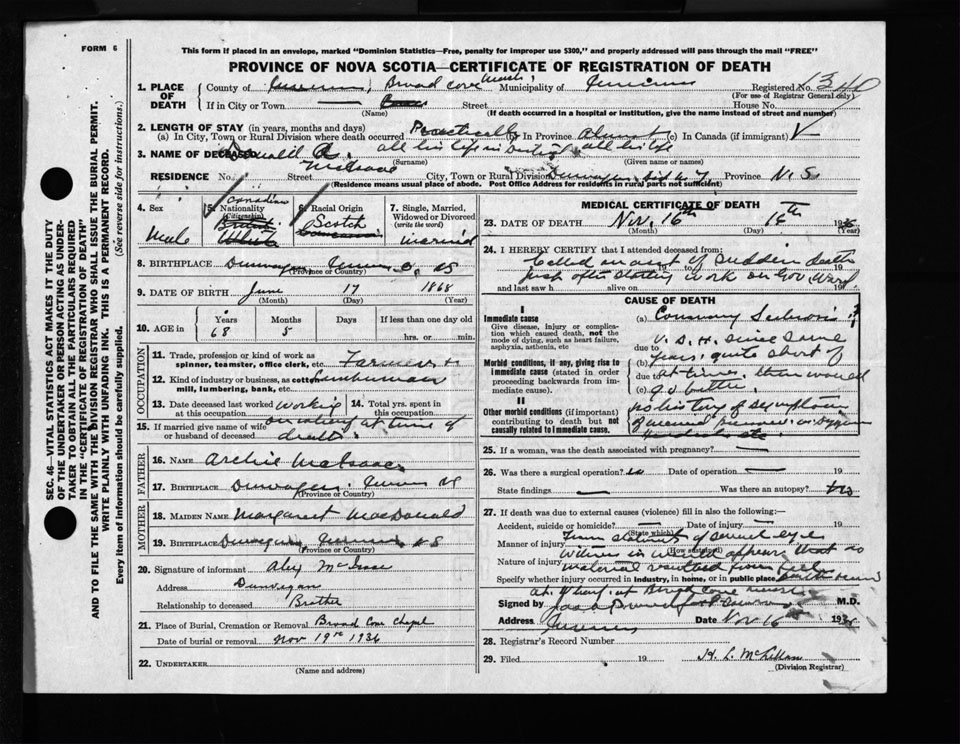 FORM 6
This form if placed in an envelope, marked "Dominion Statistics—Free, penalty for improper use $300," and properly addressed will pass through the mail "FREE"
PROVINCE OF NOVA SCOTIA—CERTIFICATE OF REGISTRATION OF DEATH
1. PLACE OF DEATH
County of Broad Cove Marsh, Municipality of Inverness Registered No.
(For use of Registrar General only)
If in City or Town — Street House No.
(Name) (If death occurred in a hospital or institution, give the name instead of street and number)
2. LENGTH OF STAY (in years, months and days)
(a) In City, Town or Rural Division where death occurred Practically all his life (b) In Province Almost all his life (c) In Canada (if immigrant)
3. NAME OF DECEASED Donald McIsaac
(Surname) (Given name or names)
RESIDENCE No. Street City, Town or Rural Division Dunvegan Province N.S.
(Residence means usual place of abode. Post Office Address for residents in rural parts not sufficient)
4. Sex Male
5. Nationality (Citizenship) Canadian
6. Racial Origin Scotch
7. Single, Married, Widowed or Divorced (write the word) Married
8. BIRTHPLACE Dunvegan NS
(Province or Country)
9. DATE OF BIRTH June 17 1868
(Month) (Day) (Year)
10. AGE in Years Months Days If less than one day old
68 5 hrs. or min.
OCCUPATION
11. Trade, profession or kind of work as spinner, teamster, office clerk, etc. Farmer +
12. Kind of industry or business, as cotton mill, lumbering, bank, etc. Lumberman
13. Date deceased last worked at this occupation working
14. Total yrs. spent in this occupation
on wharf at time of death
15. If married give name of wife or husband of deceased
FATHER
16. NAME Archie McIsaac
17. BIRTHPLACE Dunvegan NS
(Province or Country)
MOTHER
18. MAIDEN NAME Margaret MacDonald
19. BIRTHPLACE Dunvegan NS
(Province or Country)
20. Signature of informant Alex McIsaac
Address Dunvegan
Relationship to deceased Brother
21. Place of Burial, Cremation or Removal Broad Cove Chapel
Date of burial or removal Nov 19th 1936
22. UNDERTAKER
(Name and address)
MEDICAL CERTIFICATE OF DEATH
23. DATE OF DEATH Nov. 16th 16th 1936
(Month) (Day) (Year)
24. I HEREBY CERTIFY that I attended deceased from:
Called on acct of sudden death
just after starting work on Gov. Wharf
and last saw h alive on 19
CAUSE OF DEATH
I
Immediate cause
Give disease, injury or complication which caused death, not the mode of dying, such as heart failure, asphyxia, asthenia, etc
(a) Coronary
due to
V.D.H. since some
Morbid conditions, if any, giving rise to immediate cause (stated in order proceeding backwards from immediate cause).
(b) years, quite short of
due to at times, then would
(c) get better.
II
Other morbid conditions (if important) contributing to death but not causally related to immediate cause.
no history of symptoms
of
25. If a woman, was the death associated with pregnancy? —
26. Was there a surgical operation? no Date of operation — 19
State findings — Was there an autopsy?
27. If death was due to external causes (violence) fill in also the following:—
Accident, suicide or homicide? — Date of injury — 19
(State which)
Manner of injury From statement of several eye
(How sustained)
Nature of injury witnesses it would appear that no
material resulted from
Specify whether injury occurred in industry, in home, or in public place
at wharf at Broad Cove Marsh
Signed by M.D.
Address Inverness Date Nov 16th 1936
28. Registrar's Record Number
29. Filed 19 H. L. McLellan
(Division Registrar)
SEC. 46—VITAL STATISTICS ACT MAKES IT THE DUTY
OF THE UNDERTAKER OR PERSON ACTING AS UNDER-
TAKER TO OBTAIN ALL THE PARTICULARS REQUIRED
IN THE "CERTIFICATE OF REGISTRATION OF DEATH"
AND TO FILE THE SAME WITH THE DIVISION REGISTRAR WHO SHALL ISSUE THE BURIAL PERMIT.
WRITE PLAINLY WITH UNFADING INK. THIS IS A PERMANENT RECORD.
Every item of information should be carefully supplied. (See reverse side for instructions.)